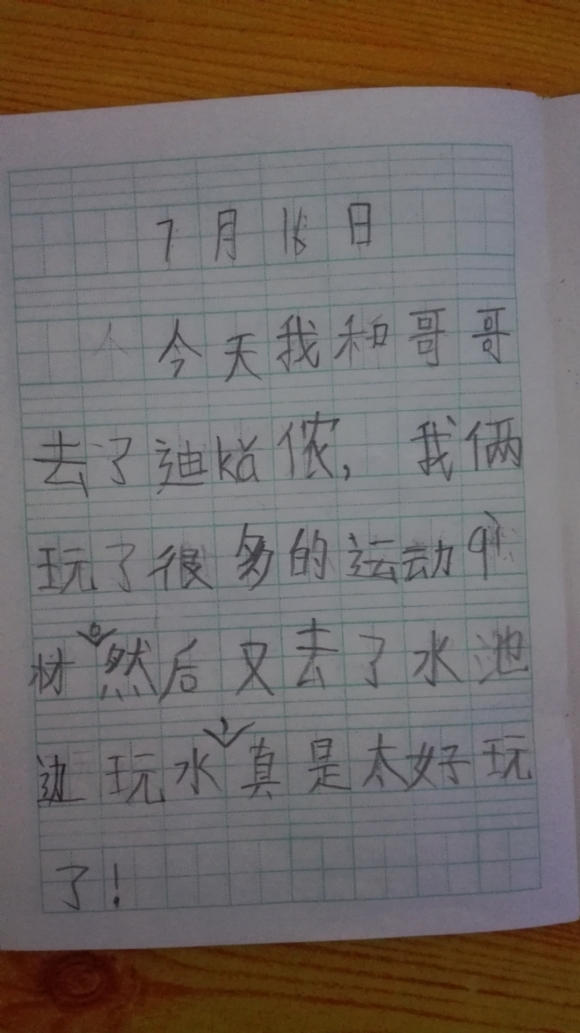 7月16日
今天我和哥哥
去了迪kǎ侬，我俩
玩了很多的运动qì
材。然后又去了水池
边玩水，真是太好玩
了！